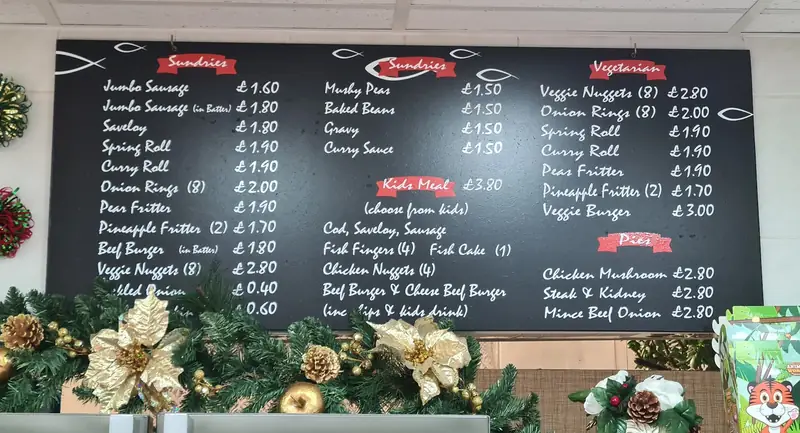 Sundries
Jumbo Sausage £1.60
Jumbo Sausage (in Batter) £1.80
Saveloy £1.80
Spring Roll £1.90
Curry Roll £1.90
Onion Rings (8) £2.00
Pear Fritter £1.90
Pineapple Fritter (2) £1.70
Beef Burger (in Batter) £1.80
Veggie Nuggets (8) £2.80
Onion £0.40
£0.60
Sundries
Mushy Peas £1.50
Baked Beans £1.50
Gravy £1.50
Curry Sauce £1.50
Kids Meal £3.80
(choose from kids)
Cod, Saveloy, Sausage
Fish Fingers (4) Fish Cake (1)
Chicken Nuggets (4)
Beef Burger & Cheese Beef Burger
(inc chips & kids drink)
Vegetarian
Veggie Nuggets (8) £2.80
Onion Rings (8) £2.00
Spring Roll £1.90
Curry Roll £1.90
Peas Fritter £1.90
Pineapple Fritter (2) £1.70
Veggie Burger £3.00
Pies
Chicken Mushroom £2.80
Steak & Kidney £2.80
Mince Beef Onion £2.80